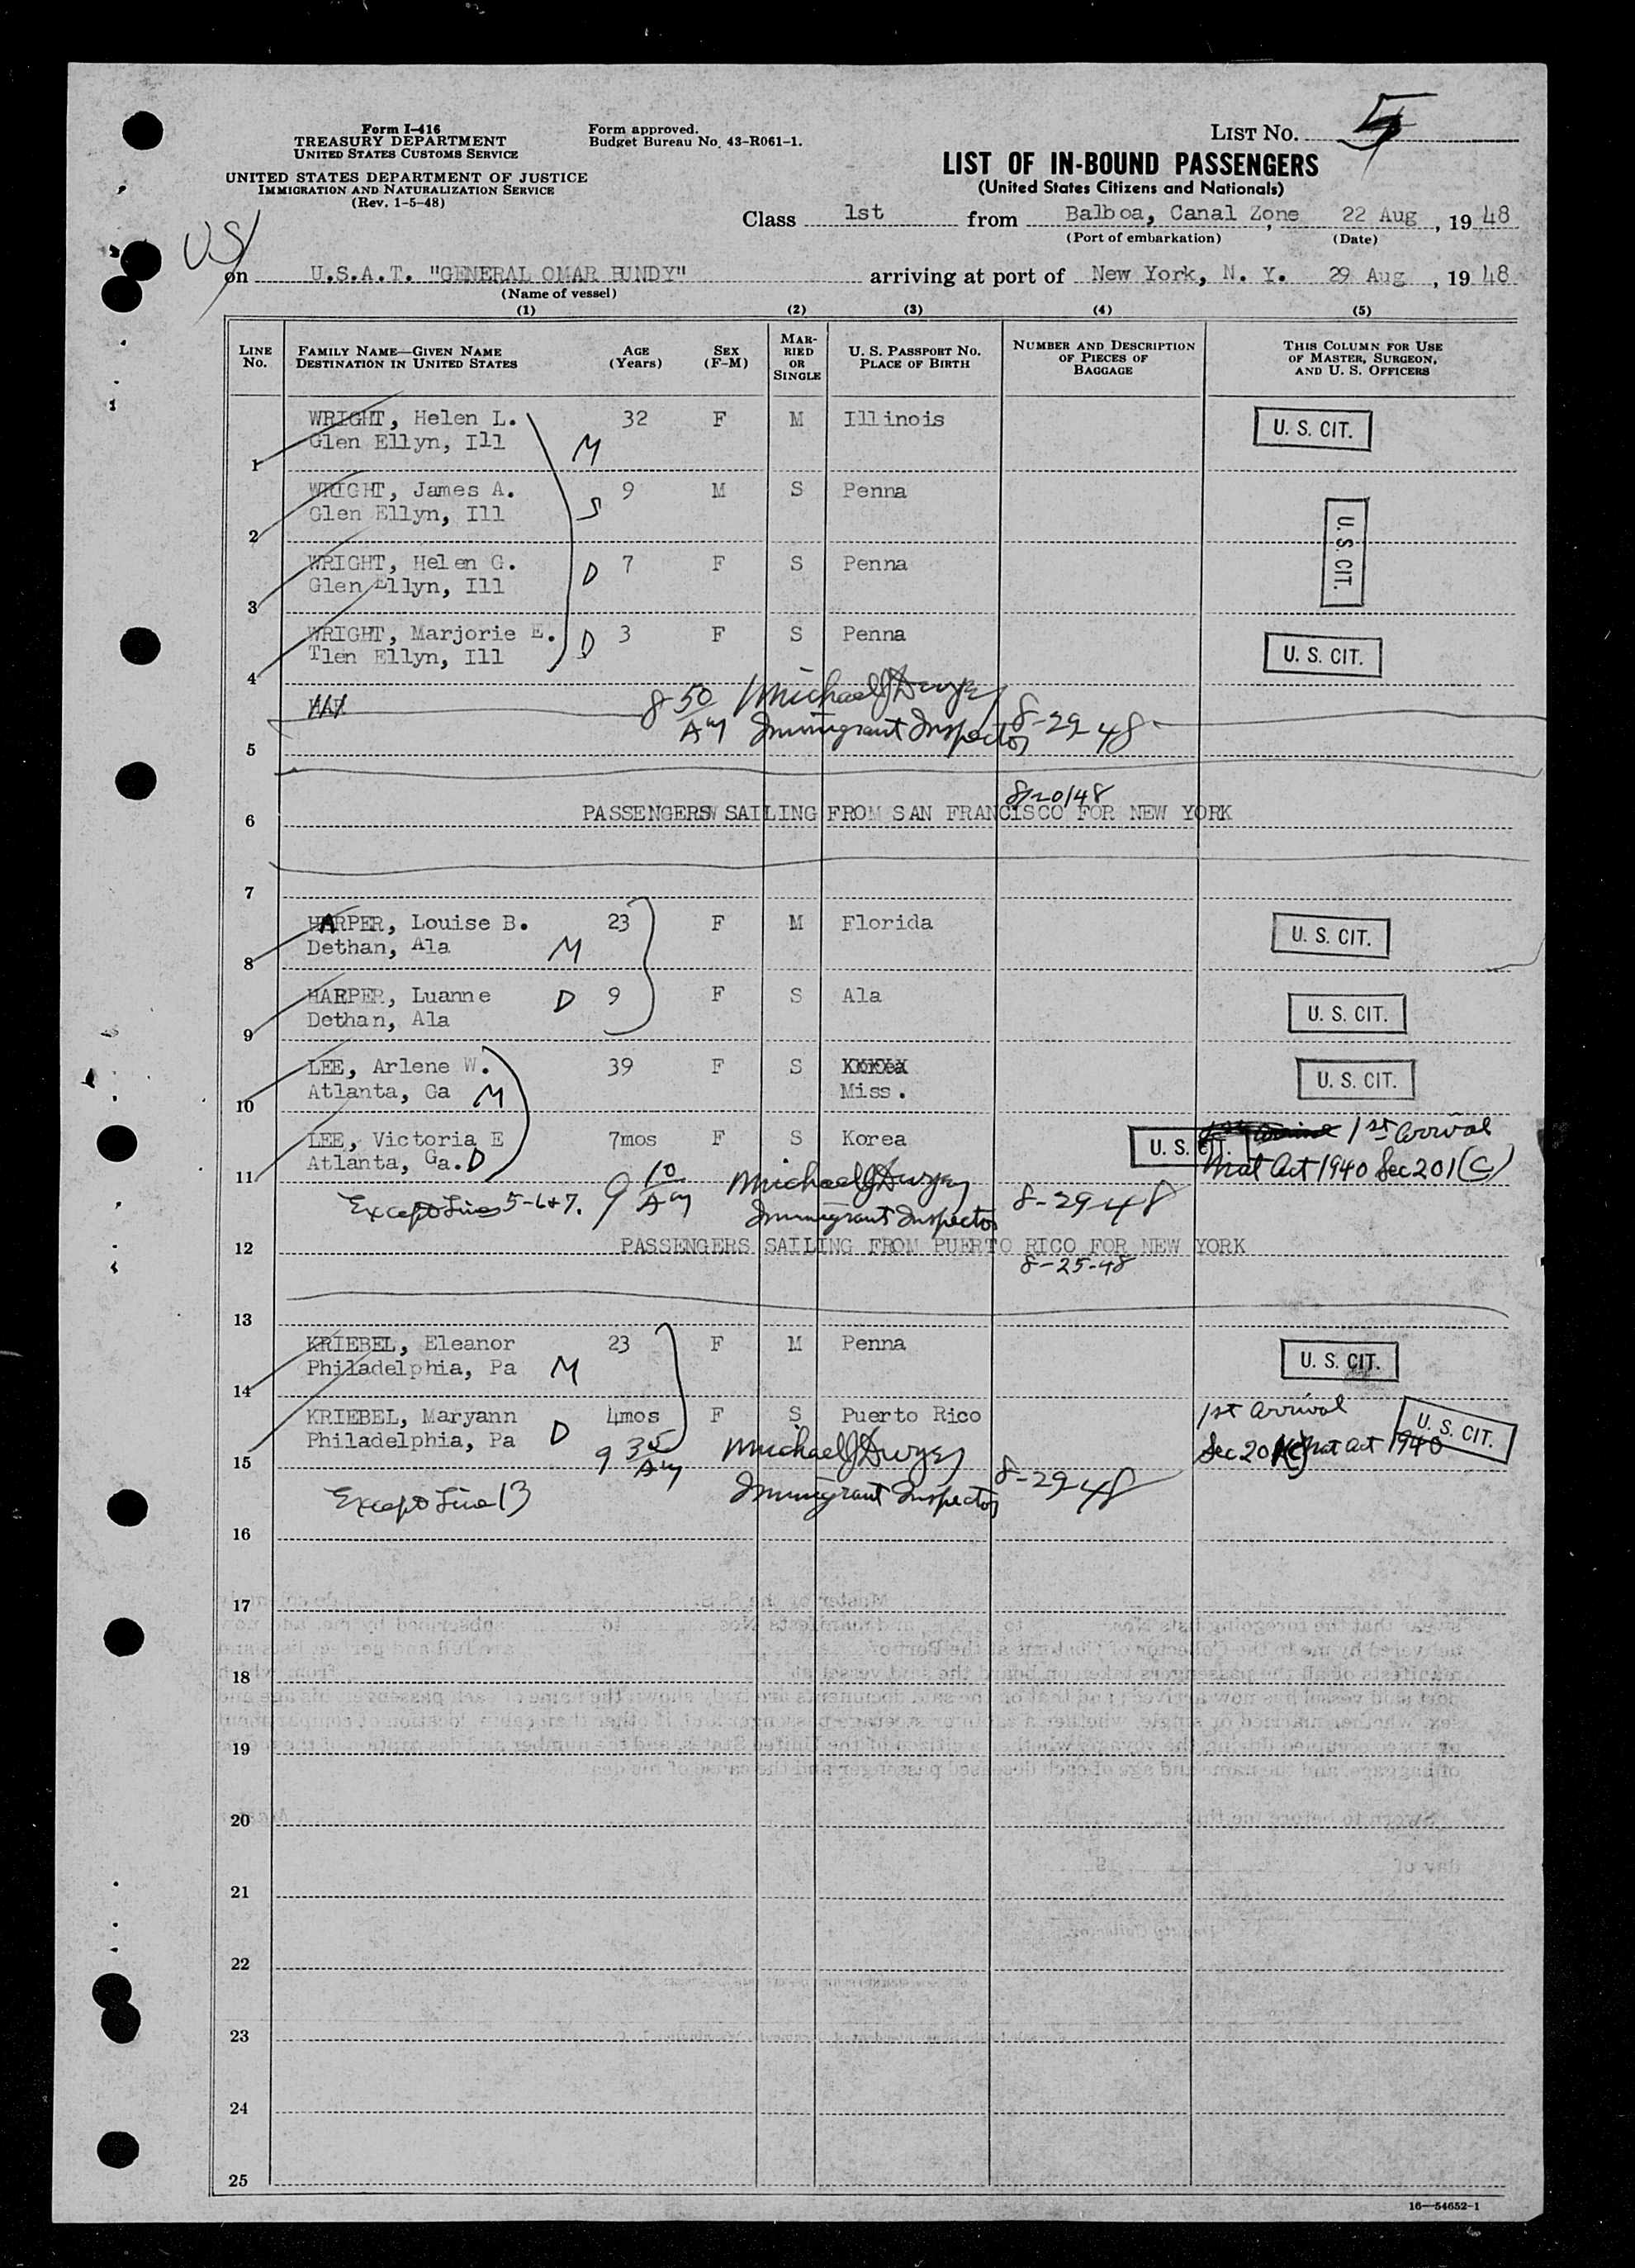 Form I-416
TREASURY DEPARTMENT
UNITED STATES CUSTOMS SERVICE
UNITED STATES DEPARTMENT OF JUSTICE
IMMIGRATION AND NATURALIZATION SERVICE
(Rev. 1-5-48)
Form approved.
Budget Bureau No. 43-R061-1.
LIST NO. 5
LIST OF IN-BOUND PASSENGERS
(United States Citizens and Nationals)
Class 1st from Balboa, Canal Zone, 22 Aug, 1948
(Port of embarkation) (Date)
US
on U.S.A.T. "GENERAL OMAR BUNDY" arriving at port of New York, N. Y. 29 Aug, 1948
(Name of vessel)
(1) (2) (3) (4) (5)
LINE No. FAMILY NAME—GIVEN NAME DESTINATION IN UNITED STATES AGE (Years) SEX (F-M) MARRIED OR SINGLE U. S. PASSPORT NO. PLACE OF BIRTH NUMBER AND DESCRIPTION OF PIECES OF BAGGAGE THIS COLUMN FOR USE OF MASTER, SURGEON, AND U. S. OFFICERS
WRIGHT, Helen L. 32 F M Illinois U. S. CIT.
1 Glen Ellyn, Ill M
WRIGHT, James A. 9 M S Penna U. S. CIT.
2 Glen Ellyn, Ill S
WRIGHT, Helen G. D 7 F S Penna
3 Glen Ellyn, Ill
WRIGHT, Marjorie E. D 3 F S Penna U. S. CIT.
4 Tlen Ellyn, Ill
HAR 8 50 AM Michael J Dwyer 8-29-48
5 Immigrant Inspector
8/20/48
6 PASSENGERS SAILING FROM SAN FRANCISCO FOR NEW YORK
7
HARPER, Louise B. 23 F M Florida U. S. CIT.
8 Dethan, Ala M
HARPER, Luanne D 9 F S Ala U. S. CIT.
9 Dethan, Ala
LEE, Arlene W. 39 F S Korea U. S. CIT.
10 Atlanta, Ga M Miss.
LEE, Victoria E 7mos F S Korea U. S. CIT. 1st Arrival
11 Atlanta, Ga. D Nat Act 1940 Sec 201(C)
Except Lines 5-6+7. 9 10 AM Michael J Dwyer 8-29-48
Immigrant Inspector
12 PASSENGERS SAILING FROM PUERTO RICO FOR NEW YORK
8-25-48
13
KRIEBEL, Eleanor 23 F M Penna U. S. CIT.
14 Philadelphia, Pa M
KRIEBEL, Maryann 4mos F S Puerto Rico 1st Arrival U. S. CIT.
15 Philadelphia, Pa D 9 35 AM Michael J Dwyer 8-29-48 Sec 201(C) Nat Act 1940
Except Line 13 Immigrant Inspector
16
17
18
19
20
21
22
23
24
25
16—54652-1